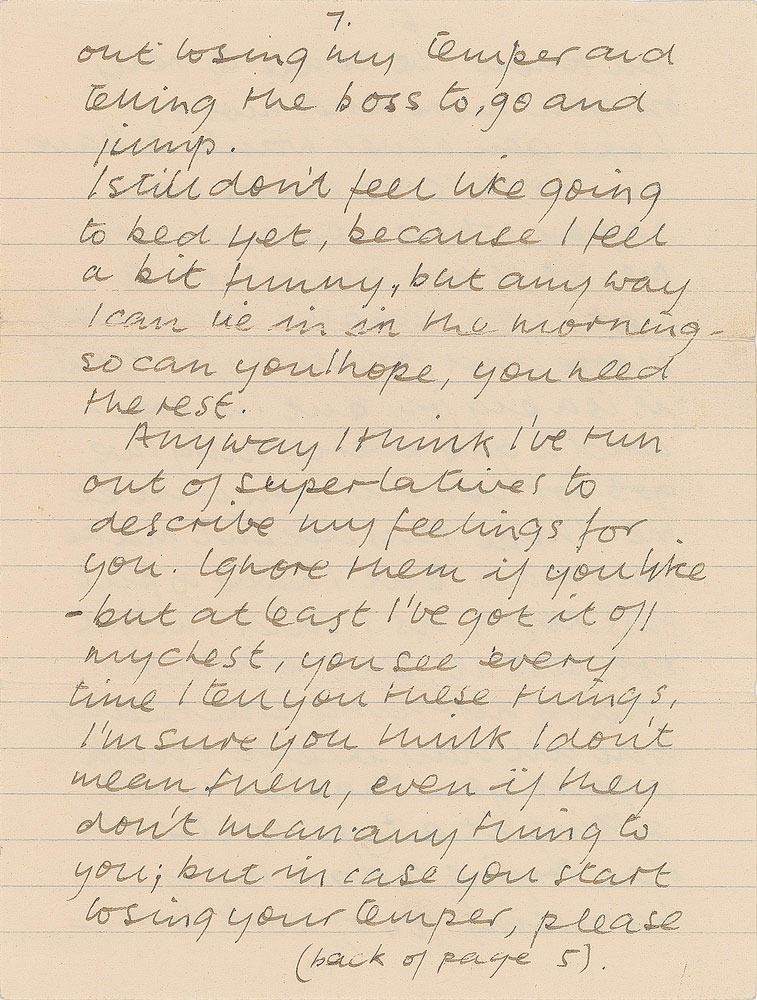 7.
out losing my temper and
telling the boss to, go and
jump.
I still don't feel like going
to bed yet, because I feel
a bit funny, but anyway
I can lie in in the morning -
so can you I hope, you need
the rest.
Anyway I think I've run
out of superlatives to
describe my feelings for
you. Ignore them if you like
- but at least I've got it off
my chest, you see every
time I tell you these things,
I'm sure you think I don't
mean them, even if they
don't mean anything to
you; but in case you start
losing your temper, please
(back of page 5).